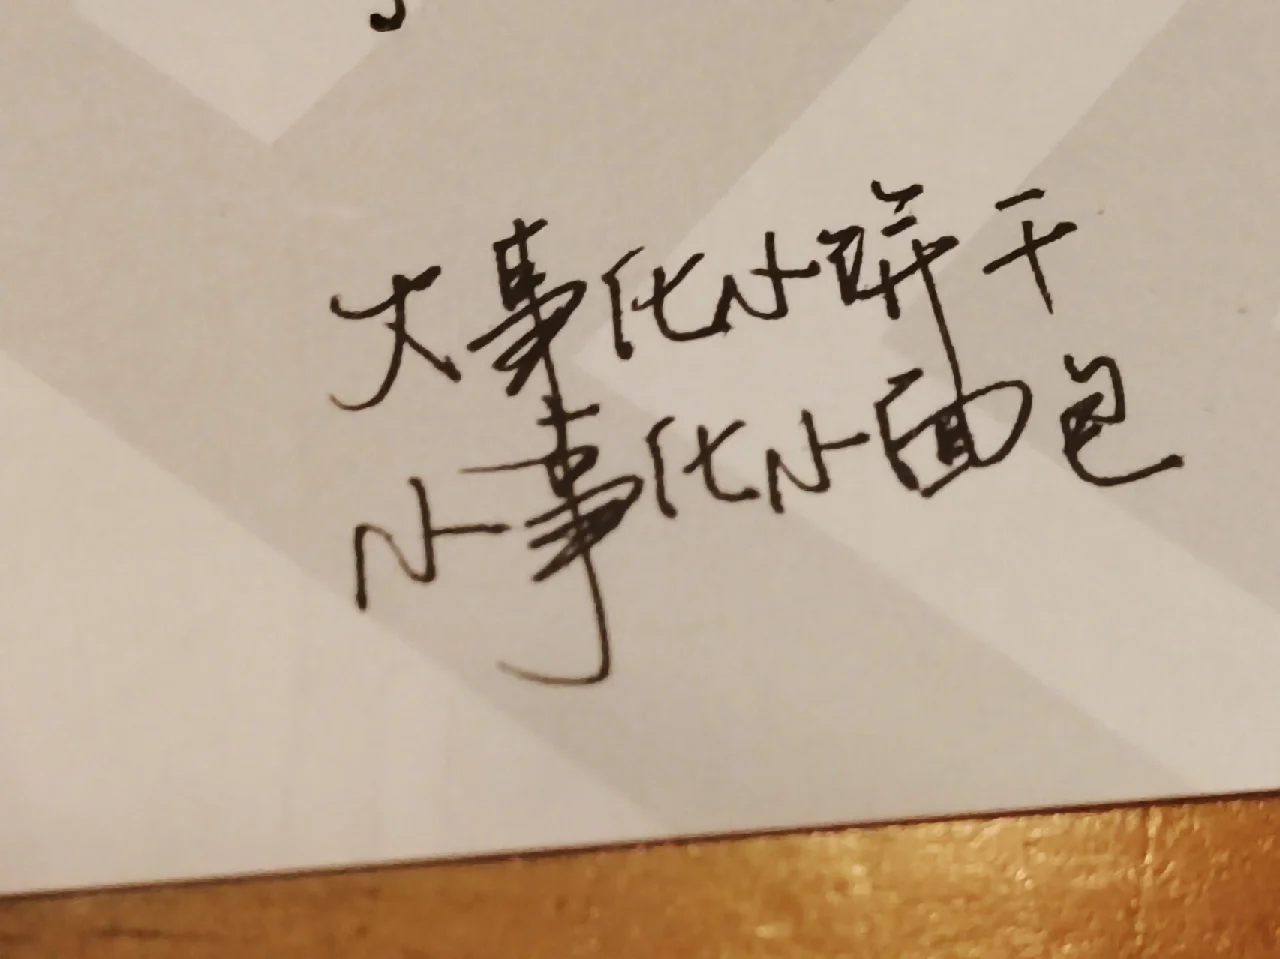 大事化小饼干
小事化小面包